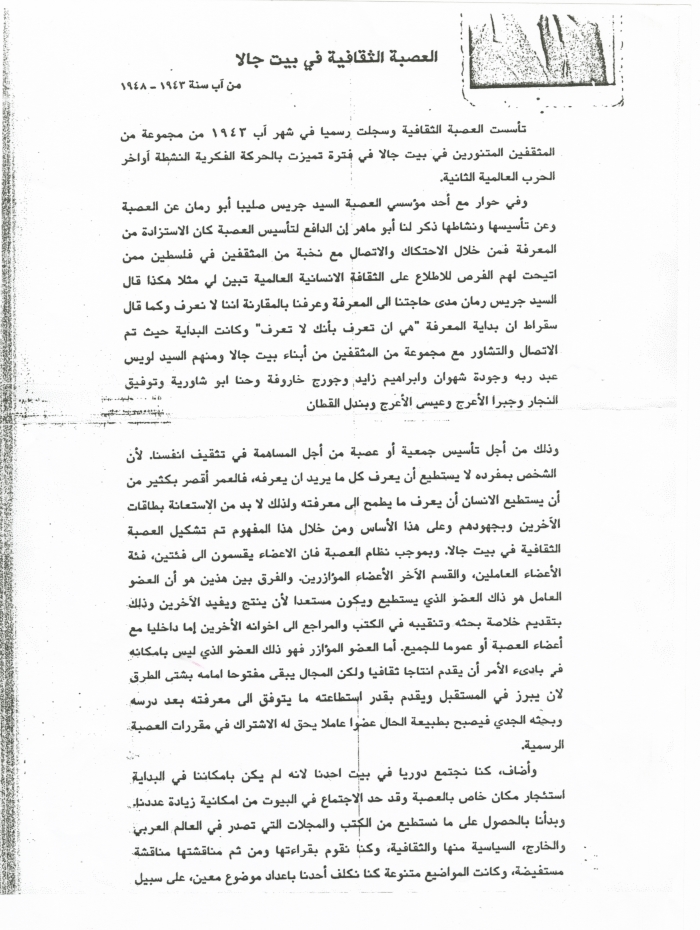 العصبة الثقافية في بيت جالا
من آب سنة ١٩٤٣ - ١٩٤٨
تأسست العصبة الثقافية وسجلت رسميا في شهر آب ١٩٤٣ من مجموعة من
المثقفين المتنورين في بيت جالا في فترة تميزت بالحركة الفكرية النشطة أواخر
الحرب العالمية الثانية.
وفي حوار مع أحد مؤسسي العصبة السيد جريس صليبا أبو رمان عن العصبة
وعن تأسيسها ونشاطها ذكر لنا أبو ماهر إن الدافع لتأسيس العصبة كان الاستزادة من
المعرفة فمن خلال الاحتكاك والاتصال مع نخبة من المثقفين في فلسطين ممن
اتيحت لهم الفرص للاطلاع على الثقافة الانسانية العالمية تبين لي مثلا هكذا قال
السيد جريس رمان مدى حاجتنا الى المعرفة وعرفنا بالمقارنة اننا لا نعرف وكما قال
سقراط ان بداية المعرفة "هي ان تعرف بأنك لا تعرف" وكانت البداية حيث تم
الاتصال والتشاور مع مجموعة من المثقفين من أبناء بيت جالا ومنهم السيد لويس
عبد ربه وجودة شهوان وابراهيم زايد وجورج خاروفة وحنا ابو شاورية وتوفيق
النجار وجبرا الأعرج وعيسى الأعرج وبندل القطان
وذلك من أجل تأسيس جمعية أو عصبة من أجل المساهمة في تثقيف انفسنا. لأن
الشخص بمفرده لا يستطيع أن يعرف كل ما يريد ان يعرفه، فالعمر أقصر بكثير من
أن يستطيع الانسان أن يعرف ما يطمح الى معرفته ولذلك لا بد من الاستعانة بطاقات
الآخرين وبجهودهم وعلى هذا الأساس ومن خلال هذا المفهوم تم تشكيل العصبة
الثقافية في بيت جالا. وبموجب نظام العصبة فان الاعضاء يقسمون الى فئتين، فئة
الأعضاء العاملين، والقسم الآخر الأعضاء المؤازرين. والفرق بين هذين هو أن العضو
العامل هو ذاك العضو الذي يستطيع ويكون مستعدا لأن ينتج ويفيد الآخرين وذلك
بتقديم خلاصة بحثه وتنقيبه في الكتب والمراجع الى اخوانه الأخرين إما داخليا مع
أعضاء العصبة أو عموما للجميع. أما العضو المؤازر فهو ذلك العضو الذي ليس بامكانه
في بادىء الأمر أن يقدم انتاجا ثقافيا ولكن المجال يبقى مفتوحا امامه بشتى الطرق
لان يبرز في المستقبل ويقدم بقدر استطاعته ما يتوفق الى معرفته بعد درسه
وبحثه الجدي فيصبح بطبيعة الحال عضوا عاملا يحق له الاشتراك في مقررات العصبة
الرسمية.
وأضاف، كنا نجتمع دوريا في بيت احدنا لانه لم يكن بامكاننا في البداية
استئجار مكان خاص بالعصبة وقد حد الاجتماع في البيوت من امكانية زيادة عددنا.
وبدأنا بالحصول على ما نستطيع من الكتب والمجلات التي تصدر في العالم العربي
والخارج، السياسية منها والثقافية، وكنا نقوم بقراءتها ومن ثم مناقشتها مناقشة
مستفيضة، وكانت المواضيع متنوعة كنا نكلف أحدنا باعداد موضوع معين، على سبيل